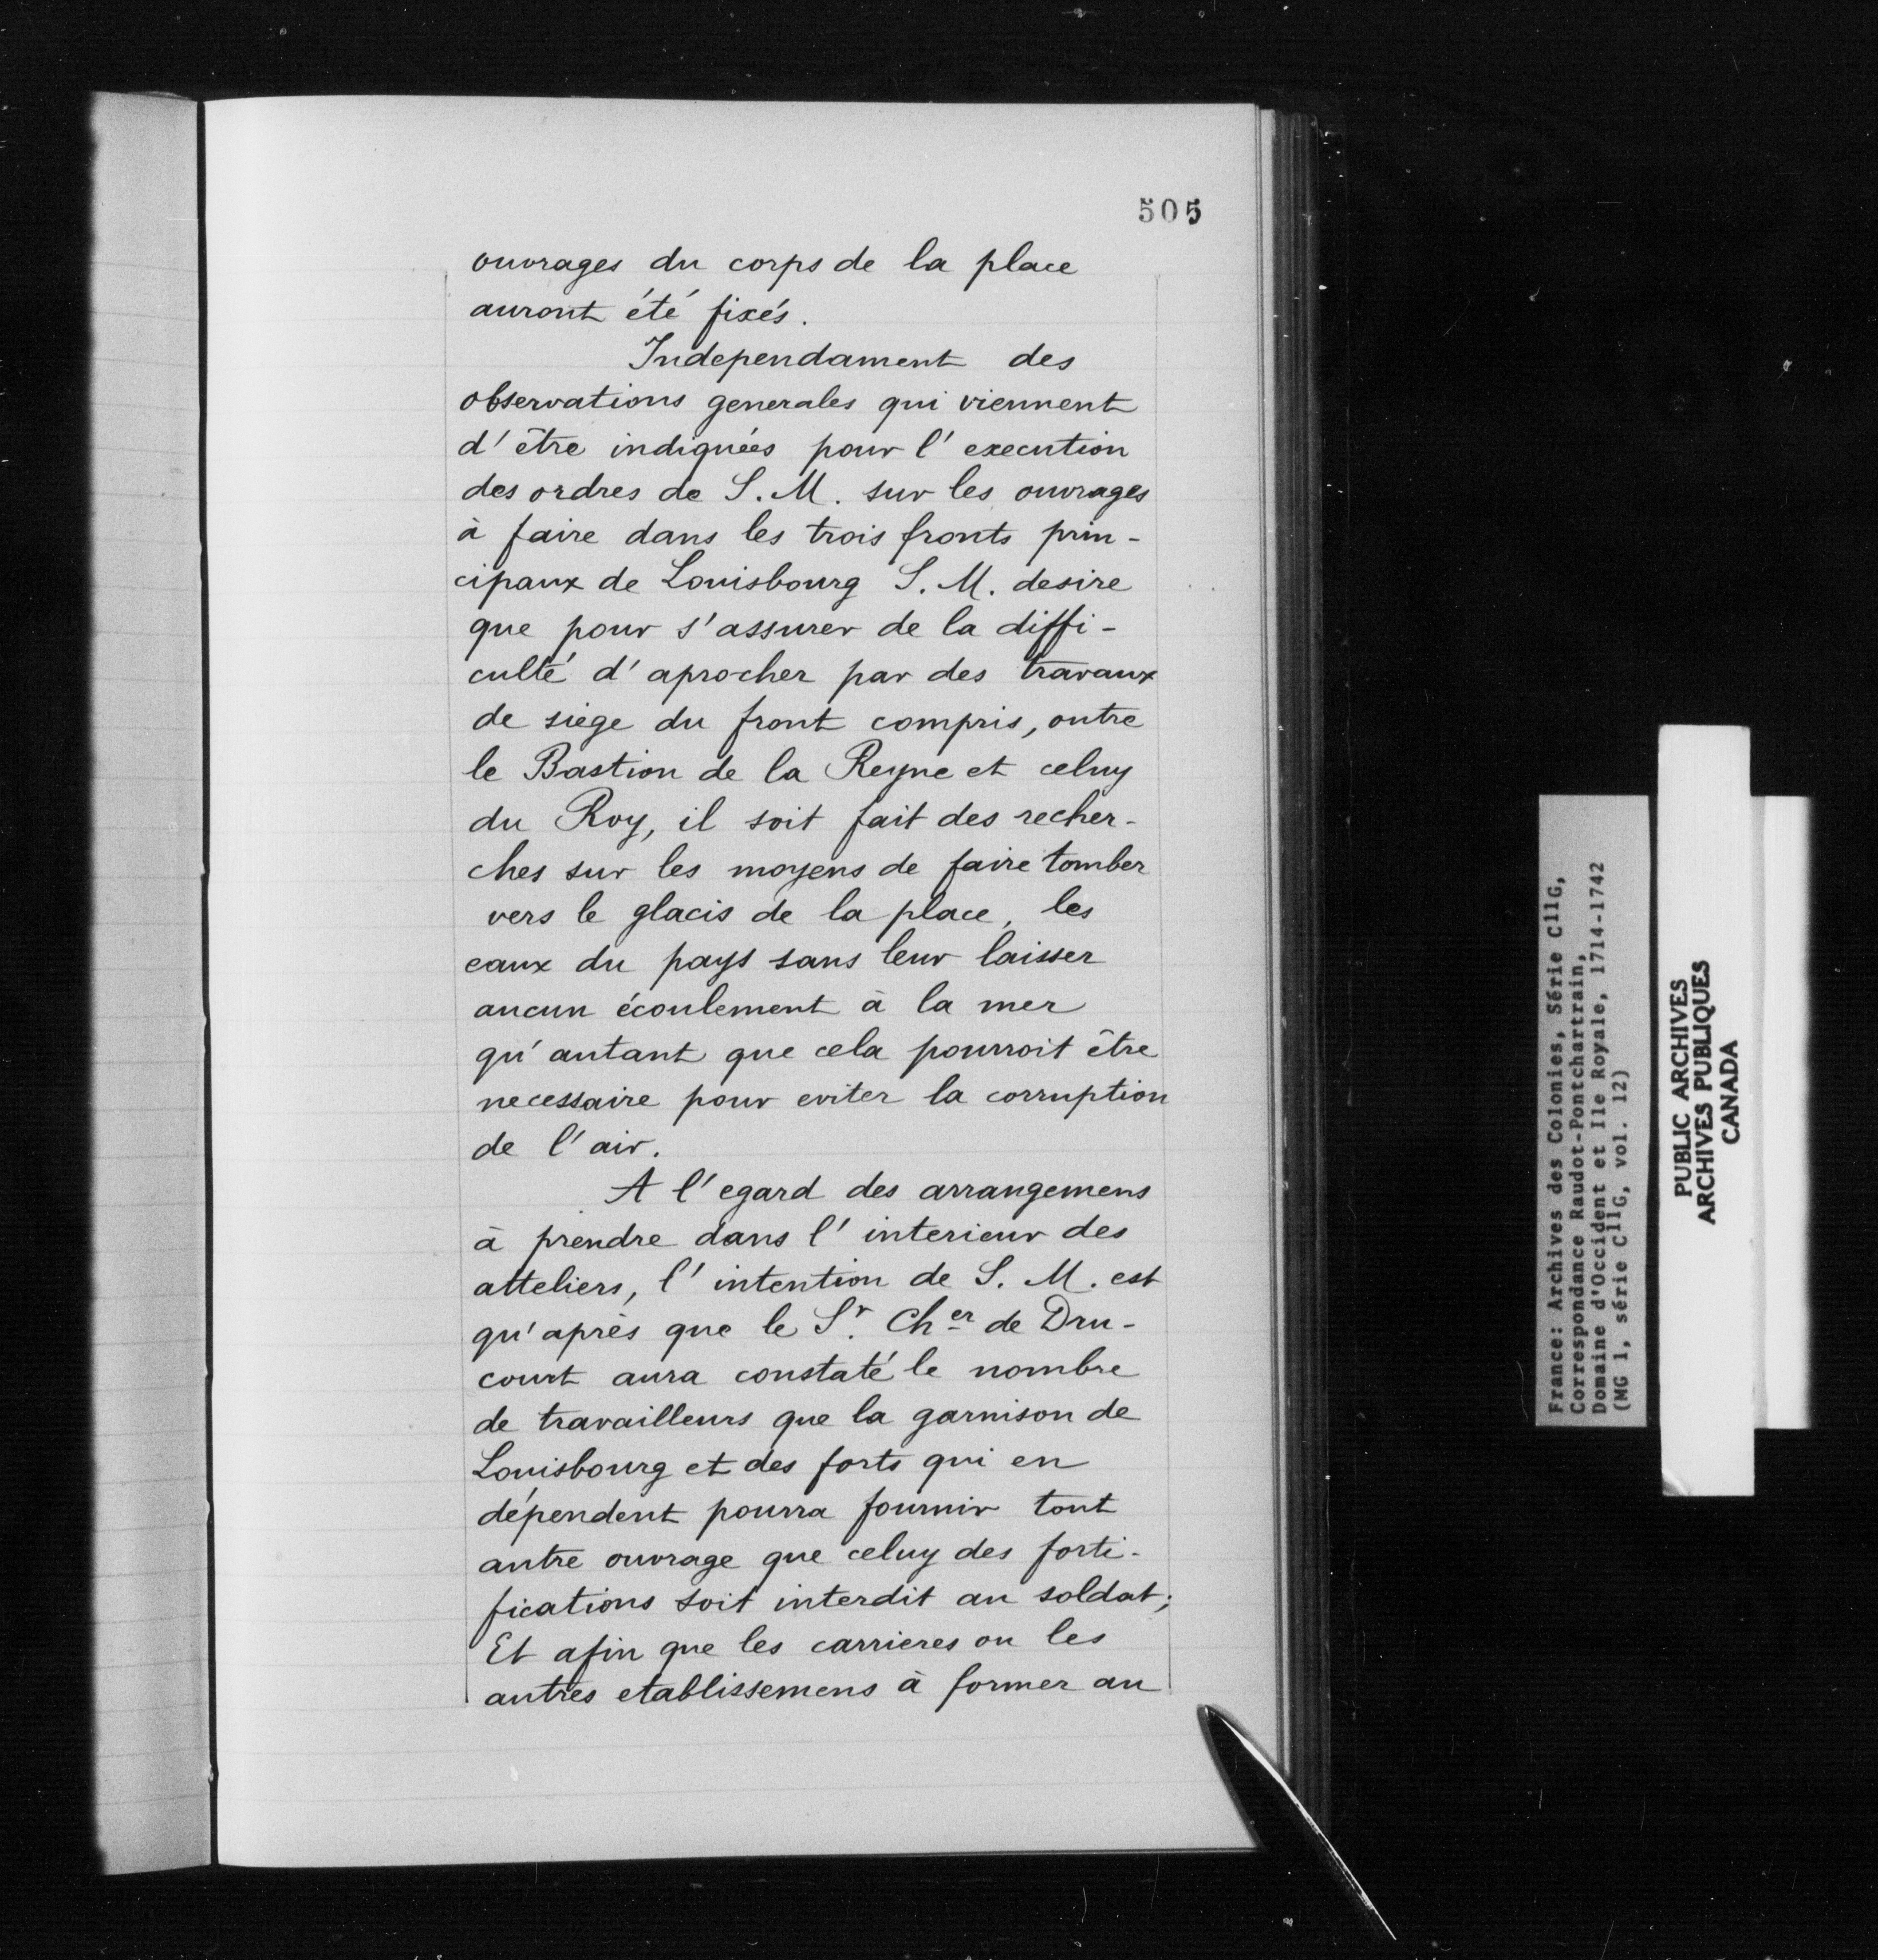 505
ouvrages du corps de la place
auront été fixés.
Independament des
observations generales qui viennent
d'être indiquées pour l'execution
des ordres de S. M. sur les ouvrages
à faire dans les trois fronts prin-
cipaux de Louisbourg S. M. desire
que pour s'assurer de la diffi-
culté d'aprocher par des travaux
de siege du front compris, outre
le Bastion de la Reyne et celuy
du Roy, il soit fait des recher-
ches sur les moyens de faire tomber
vers le glacis de la place, les
eaux du pays sans leur laisser
aucun écoulement à la mer
qu'autant que cela pourroit être
necessaire pour eviter la corruption
de l'air.
A l'egard des arrangemens
à prendre dans l'interieur des
atteliers, l'intention de S. M. est
qu'après que le Sr. Cher de Dru-
court aura constaté le nombre
de travailleurs que la garnison de
Louisbourg et des forts qui en
dépendent pourra fournir tout
autre ouvrage que celuy des forti-
fications soit interdit au soldat;
Et afin que les carrieres ou les
autres etablissemens à former au
France: Archives des Colonies, Série C11G,
Correspondance Raudot-Pontchartrain,
Domaine d'Occident et Ile Royale, 1714-1742
(MG 1, série C11G, vol. 12)
PUBLIC ARCHIVES
ARCHIVES PUBLIQUES
CANADA